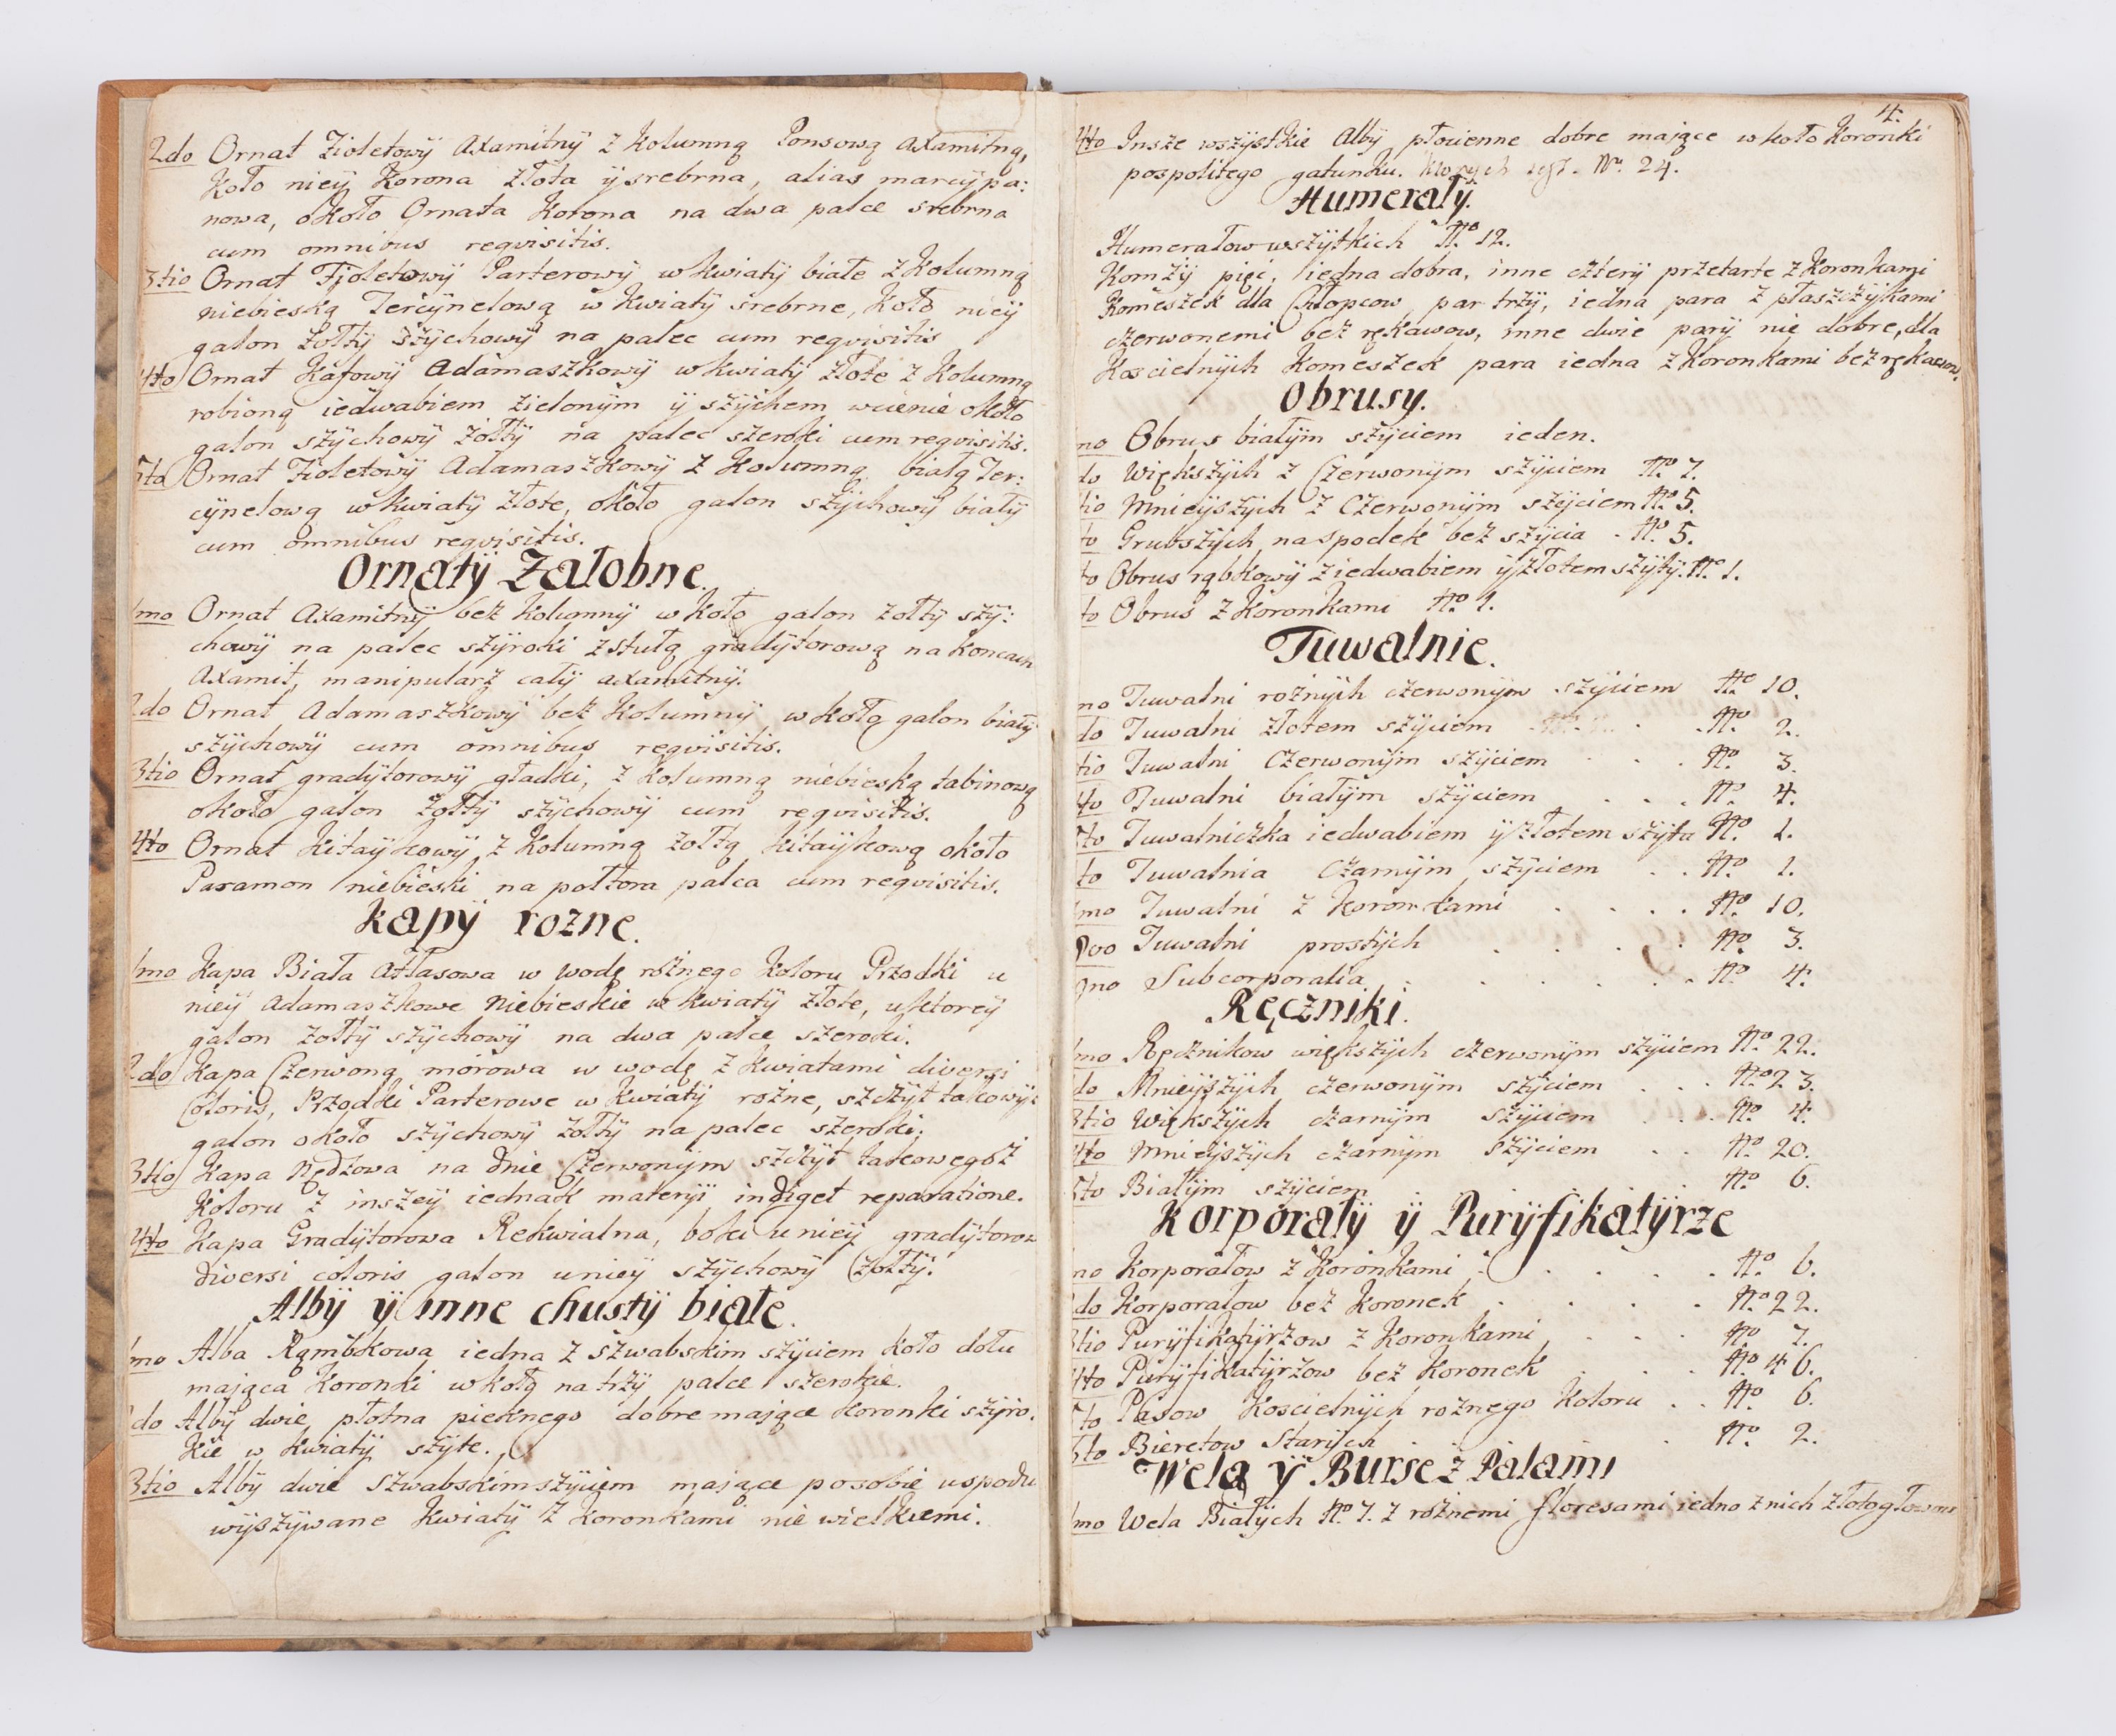 2do Ornat Fioletowÿ Axamitnÿ z Kolumną Ponsową axamitną,
Koło nieÿ Korona złota ÿ srebrna, alias marcÿpa:
nowa, około Ornata Korona na dwa palce srebrna
cum omnibus reqvisitis.
3tio Ornat Fioletowÿ Parterowÿ w kwiatÿ białe z Kolumną
niebieską Tercÿnelową w kwiatÿ srebrne, koło nieÿ
galon żołtÿ szÿchowÿ na palec cum reqvisitis
4to Ornat Kafowÿ Adamaszkowÿ w kwiatÿ złote z Kolumną
robioną iedwabiem zielonÿm ÿ szÿchem wcienie około
galon szÿchowÿ żołtÿ na palec szeroki cum reqvisitis.
5to Ornat Fioletowÿ Adamaszkowÿ z Kolumną białą Ter:
cÿnelową w kwiatÿ złote, około galon szÿchowÿ białÿ
cum omnibus reqvisitis.
Ornatÿ Załobne.
1mo Ornat Axamitnÿ bez kolumnÿ w koło galon żołtÿ szÿ:
chowÿ na palec szÿroki z stułą gradÿtorową na koncach
Axamit, manipularz całÿ axamitnÿ.
2do Ornat Adamaszkowÿ bez Kolumnÿ w koło galon białÿ
szÿchowÿ cum omnibus reqvisitis.
3tio Ornat gradÿtorowÿ gładki, z Kolumną niebieską tabinową
około galon żołtÿ szÿchowÿ cum reqvisitis.
4to Ornat Kitaÿkowÿ z Kolumną żołtą kitaÿkową około
Paxamon niebieski na połtora palca cum reqvisitis.
Kapÿ rożne.
1mo Kapa Biała Atłasowa w wodę rożnego koloru Przodki u
nieÿ Adamaszkowe niebieskie w kwiatÿ złote, u ktoreÿ
galon żołtÿ szÿchowÿ na dwa palce szeroki.
2do Kapa Czerwona morowa w wodę z kwiatami diversi
Coloris, Przodki Parterowe w kwiatÿ rożne, szczÿt takowÿż
galon około szÿchowÿ żołtÿ na palec szeroki.
3tio Kapa na dnie Czerwonÿm szczÿt takowegoż
Koloru z inszeÿ iednak materÿi indiget reparatione.
4to Kapa Gradÿtorowa Rekwialna, boki u nieÿ gradÿtorow
diversi coloris galon u nieÿ szÿchowÿ żołtÿ.
Albÿ ÿ inne chustÿ białe.
1mo Alba Rąmbkowa iedna z szwabskim szÿciem koło dołu
maiąca Koronki w koło na trzÿ palce szerokie.
2do Albÿ dwie płotna pieknego dobre maiące koronki szÿro.
kie w kwiatÿ szÿte.
3tio Albÿ dwie Szwabskim szÿciem maiące po sobie u spodu
wÿszÿwane kwiatÿ z koronkami nie wielkiemi.
4.
4to Insze wszÿstkie Albÿ płocienne dobre maiące w koło Koronki
pospolitego gatunku. ktorych iest. No. 24.
Humerałÿ.
Humerałow wszÿtkich No 12.
Komżÿ pięć, iedna dobra, inne czterÿ przetarte z koronkami
Komeszek dla Chłopcow par trzÿ, iedna para z płaszczÿkami
czerwonemi bez rękawow, inne dwie parÿ nie dobre, dla
Koscielnÿch Komeszek para iedna z koronkami bez rękawow.
Obrusy.
mo Obrus białÿm szÿciem ieden.
do Większÿch z Czerwonÿm szÿciem No 7.
tio Mnieÿszÿch z Czerwonÿm szÿciem No 5.
to Grubszÿch na spodek bez szÿcia . No 5.
to Obrus rąbkowÿ z iedwabiem ÿ złotem szÿtÿ. No 1.
to Obrus z Koronkami No 1.
Tuwalnie.
mo Tuwalni rożnÿch czerwonÿm szÿciem No 10.
do Tuwalni złotem szÿciem . No 2.
tio Tuwalni Czerwonÿm szÿciem . . . No 3.
4to Tuwalni białÿm szÿciem . . . No 4.
5to Tuwalniczka iedwabiem ÿ złotem szÿta No 1.
to Tuwalnia Czarnÿm szÿciem . . No 1.
mo Tuwalni z Koronkami . . . . No 10.
8vo Tuwalni prostÿch . . . . No 3.
9no Subcorporalia . . . . . No 4.
Ręczniki.
1mo Ręcznikow większÿch czerwonÿm szÿciem No 22.
2do Mnieÿszÿch czerwonÿm szÿciem . . . No 23.
3tio Większÿch czarnÿm szÿciem . . . No 4.
4to Mnieÿszÿch czarnÿm szÿciem . . No 20.
5to Białÿm szÿciem . No 6.
Korporałÿ ÿ Purÿfikatÿrze
mo Korporałow z Koronkami . . . . . No 6.
2do Korporałow bez Koronek . . . . No 22.
3tio Purÿfikatÿrzow z Koronkami . . . No 7.
4to Purÿfikatÿrzow bez Koronek . . . No 46.
5to Pasow Koscielnÿch rożnego Koloru . . No 6.
6to Bieretow Starÿch . . No 2.
Wela ÿ Burse z Palami
1mo Wela Białÿch No 7. z rożnemi floresami iedno z nich złotogłowow